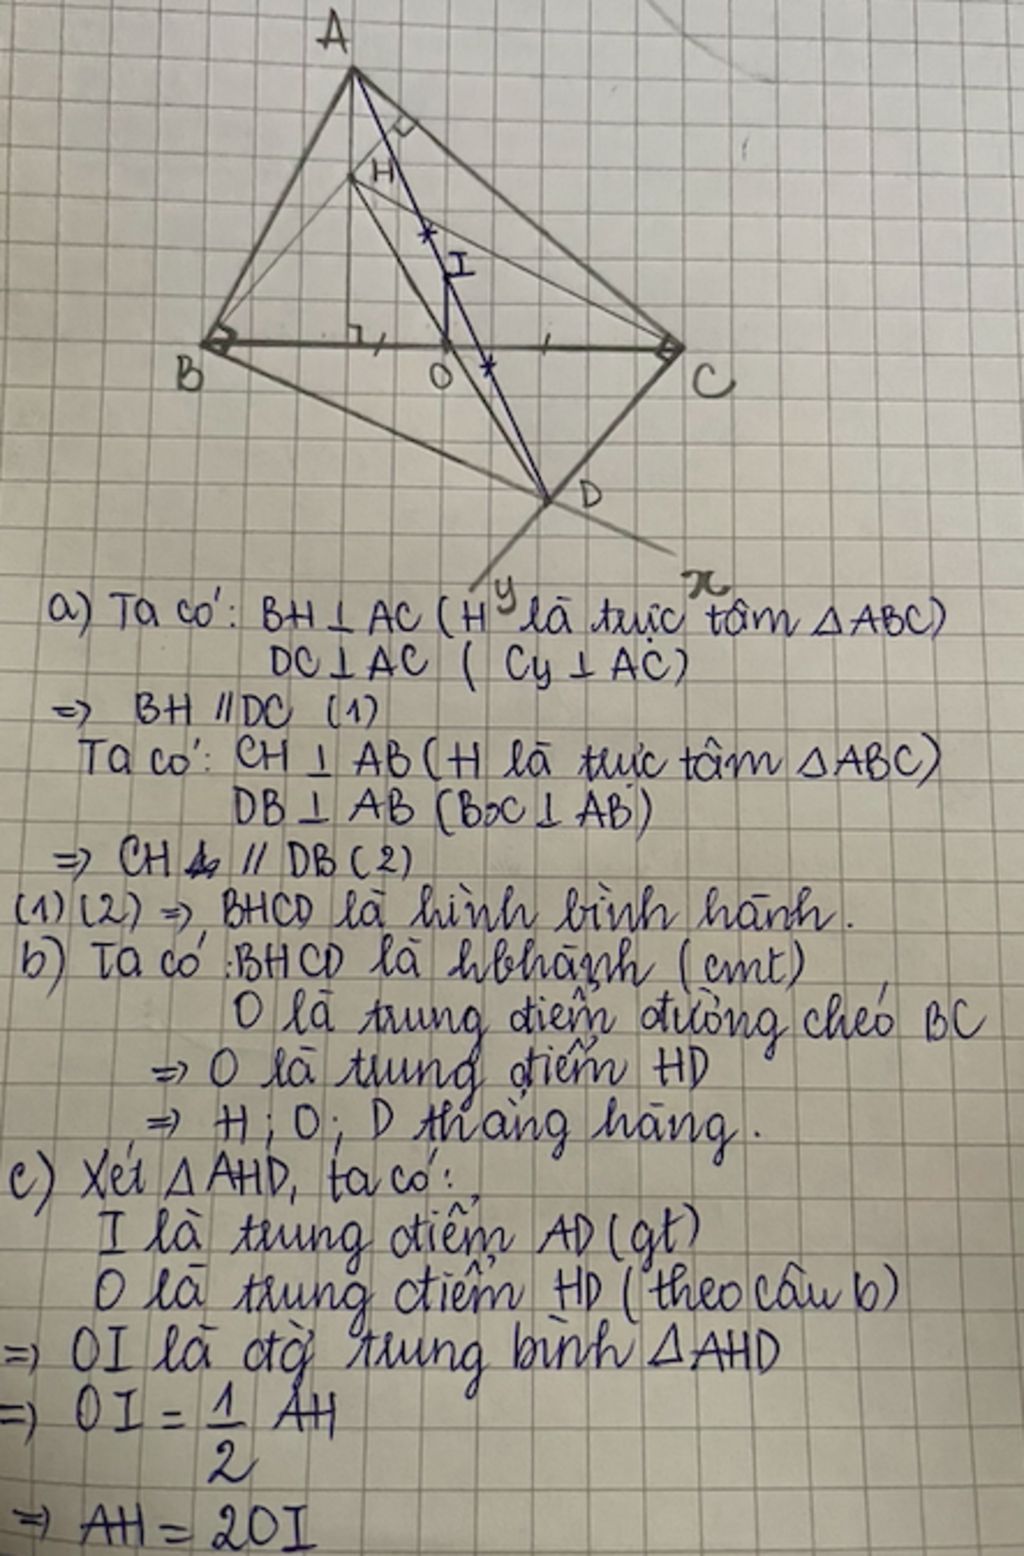 A
H
I
B
O
C
D
y
x
a) Ta có: BH ⊥ AC (H là trực tâm △ABC)
DC ⊥ AC ( Cy ⊥ AC)
=> BH // DC (1)
Ta có: CH ⊥ AB (H là trực tâm △ABC)
DB ⊥ AB (Bx ⊥ AB)
=> CH // DB (2)
(1) (2) => BHCD là hình bình hành.
b) Ta có : BHCD là hbhành (cmt)
O là trung điểm đường chéo BC
=> O là trung điểm HD
=> H; O; D thẳng hàng.
c) Xét △AHD, ta có:
I là trung điểm AD (gt)
O là trung điểm HD (theo câu b)
=> OI là đg` trung bình △AHD
=> OI = 1/2 AH
=> AH = 2OI